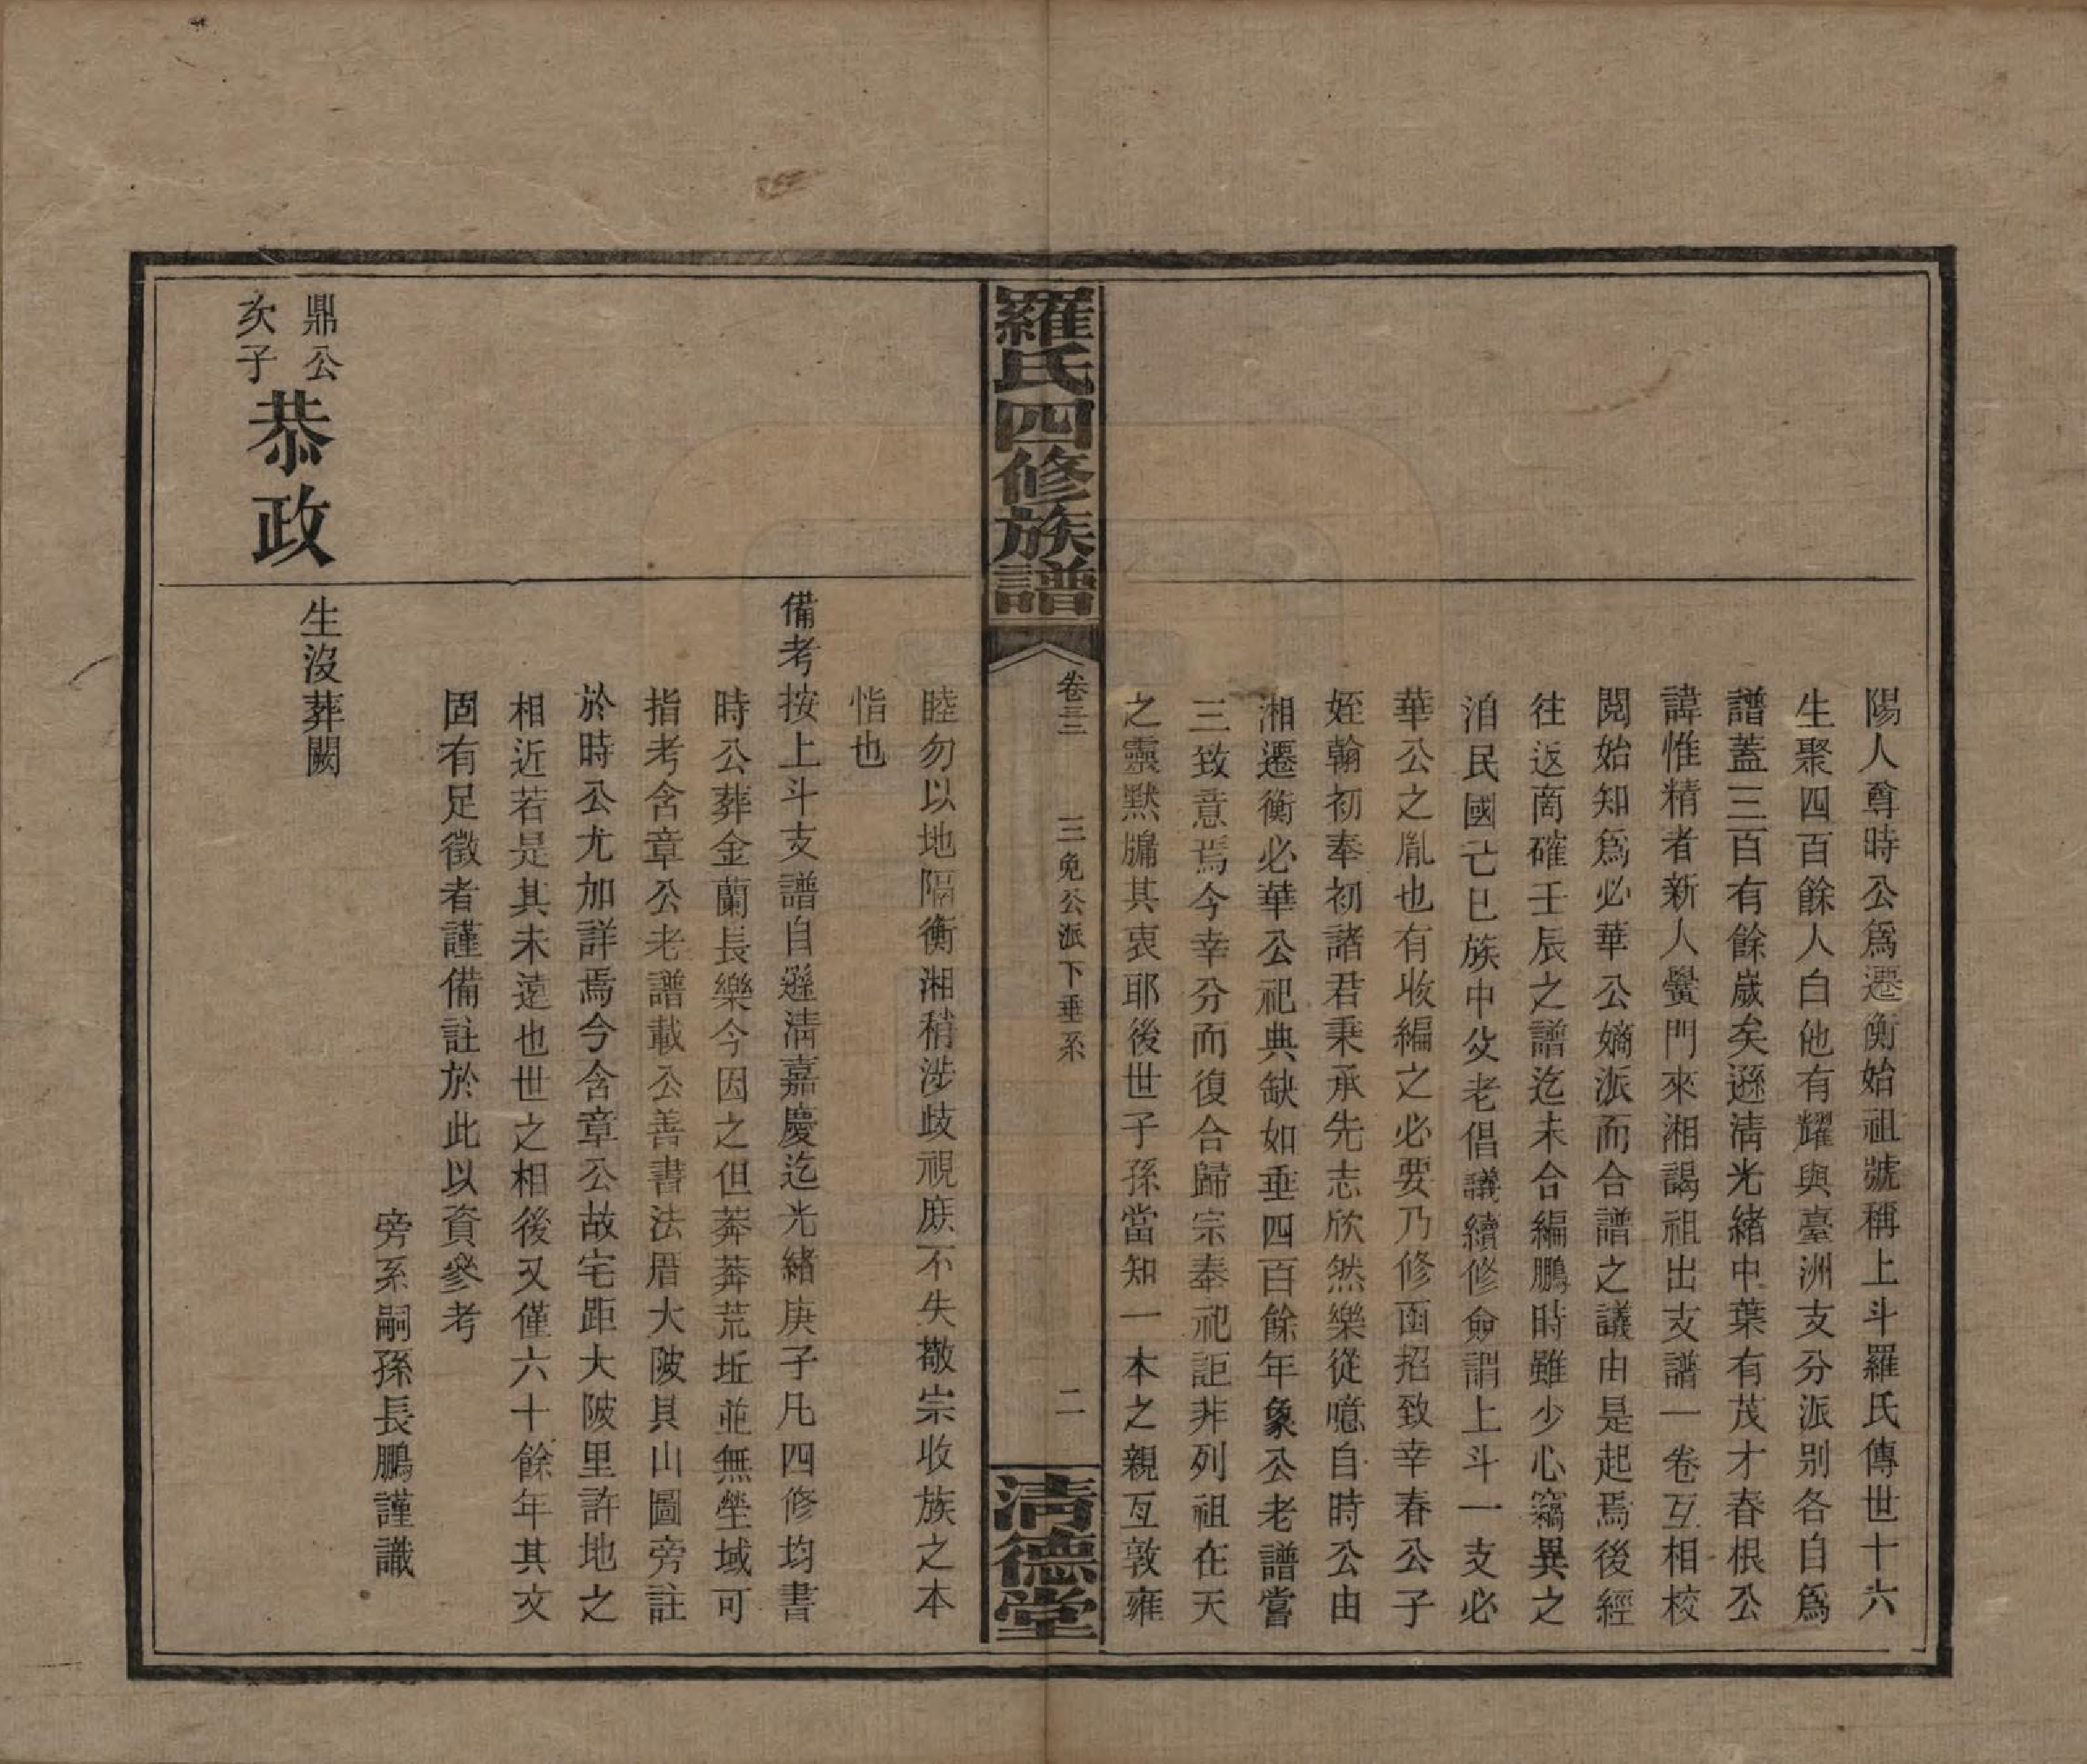 陽人尊時公爲遷衡始祖號稱上斗羅氏傳世十六
生聚四百餘人白他有耀與臺洲支分派别各自爲
譜蓋三百有餘歲矣遜清光緒中葉有茂才春根公
諱惟精者新入黌門來湘謁祖出支譜一卷互相校
閱始知爲必華公嫡派而合譜之議由是起焉後經
往返商確壬辰之譜迄未合編鵬時雖少心竊異之
洎民國己巳族中父老倡議續修僉謂上斗一支必
華公之胤也有收編之必要乃修函招致幸春公子
姪翰初奉初諸君秉承先志欣然樂從噫自時公由
湘遷衡必華公祀典缺如垂四百餘年象公老譜嘗
三致意焉今幸分而復合歸宗奉祀詎非列祖在天
之靈默牖其衷耶後世子孫當知一本之親互敦雍
羅氏四修族譜
卷三
三免公派下垂系
二
清德堂
睦勿以地隔衡湘稍涉歧視庶不失敬宗收族之本
恉也
備考按上斗支譜自遜清嘉慶迄光緒庚子凡四修均書
時公葬金蘭長樂今因之但莽莽荒坵並無塋域可
指考含章公老譜載公善書法厝大陂具山圖旁註
於時公尤加詳焉今含章公故宅距大陂里許地之
相近若是其未遠也世之相後又僅六十餘年其文
固有足徵者謹備註於此以資參考
旁系嗣孫長鵬謹識
鼎公
次子
恭政
生沒葬闕